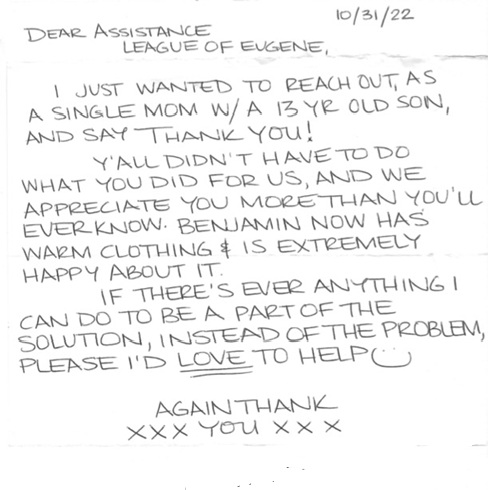 10/31/22
DEAR ASSISTANCE
LEAGUE OF EUGENE,
I JUST WANTED TO REACH OUT, AS
A SINGLE MOM W/ A 13 YR OLD SON,
AND SAY THANK YOU!
Y'ALL DIDN'T HAVE TO DO
WHAT YOU DID FOR US, AND WE
APPRECIATE YOU MORE THAN YOU'LL
EVER KNOW. BENJAMIN NOW HAS
WARM CLOTHING & IS EXTREMELY
HAPPY ABOUT IT.
IF THERE'S EVER ANYTHING I
CAN DO TO BE A PART OF THE
SOLUTION, INSTEAD OF THE PROBLEM,
PLEASE I'D LOVE TO HELP
AGAIN THANK
XXX YOU XXX